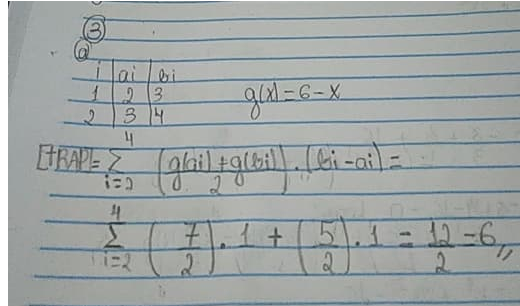 3
a
i | ai | bi
1 | 2 | 3
2 | 3 | 4
g(x) = 6 - x
[TRAP] = 4∑i=2 (g(ai) + g(bi) / 2) . (bi - ai) =
4∑i=2 (7/2) . 1 + (5/2) . 1 = 12/2 = 6,,